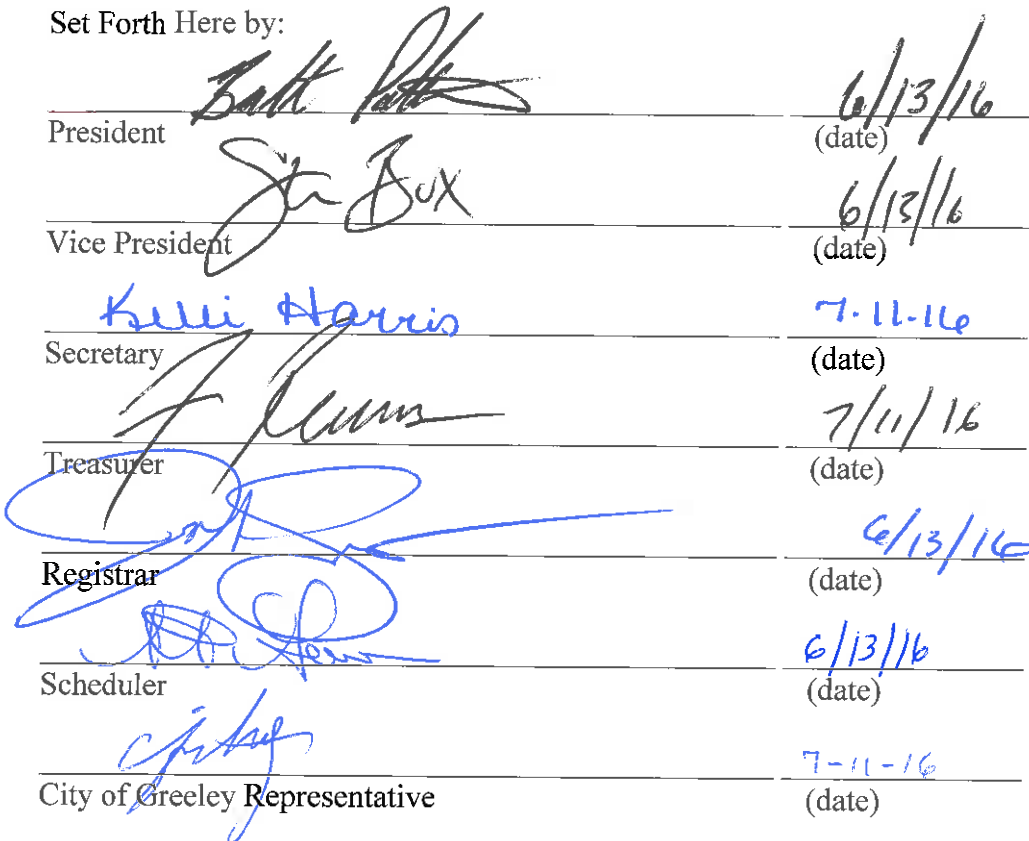 Set Forth Here by:
6/13/16
President (date)
Box 6/13/16
Vice President (date)
Kelli Harris 7-11-16
Secretary (date)
7/11/16
Treasurer (date)
6/13/16
Registrar (date)
6/13/16
Scheduler (date)
7-11-16
City of Greeley Representative (date)